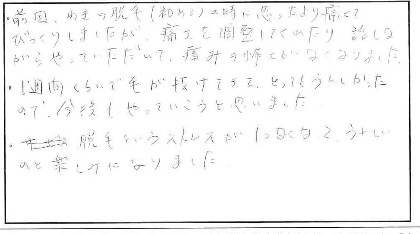 ・前回、わきの脱毛(初めて)の時に思ったより痛くて
びっくりしましたが、痛さを調整してくれたり 話しな
がらやっていただいて、痛みの怖さがなくなりました。
・1週間くらいで毛が抜けてきて、とってもうれしかった
ので、今後もやっていこうと思いました
・脱毛というストレスが1つなくなって、うれしい
のと楽しみになりました